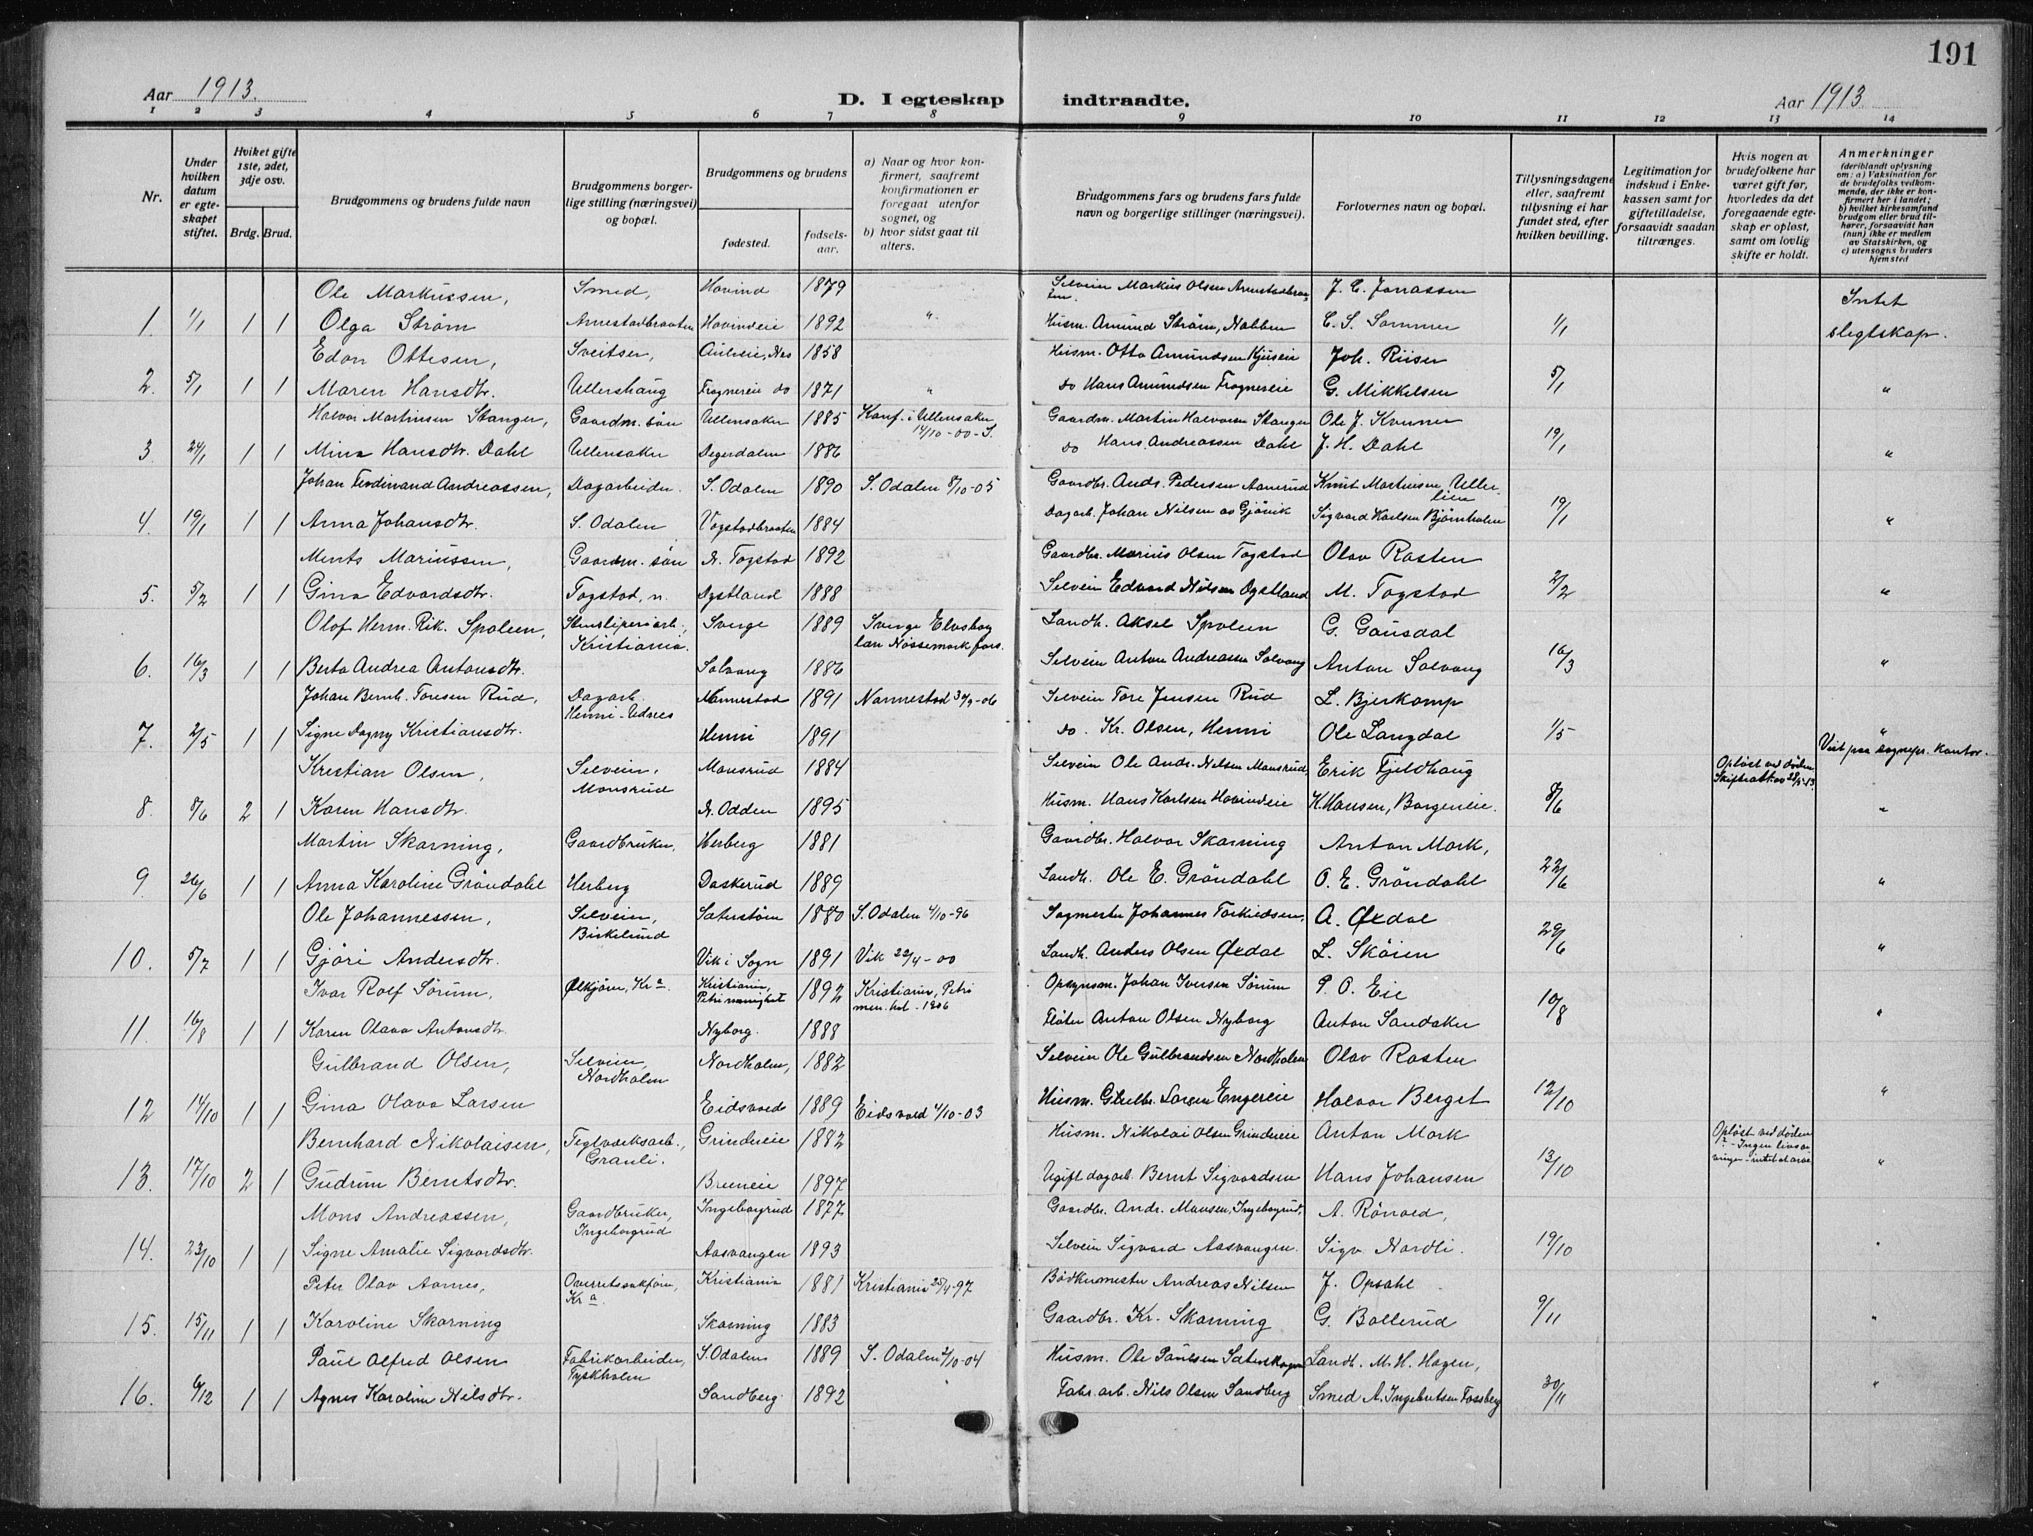 191
Aar 1913.
D. I egteskap indtraadte.
Aar 1913
1 2 3 4 5 6 7 8 9 10 11 12 13 14
Nr.
Under hvilken datum er egteskapet stiftet.
Hviket gifte 1ste, 2det, 3dje osv.
Brdg. Brud.
Brudgommens og brudens fulde navn
Brudgommens borgerlige stilling (næringsvei) og bopæl.
Brudgommens og brudens
fødested.
fødselsaar.
a) Naar og hvor konfirmert, saafremt konfirmationen er foregaat utenfor sognet, og
b) hvor sidst gaat til alters.
Brudgommens fars og brudens fars fulde navn og borgerlige stillinger (næringsvei).
Forlovernes navn og bopæl.
Tillysningsdagene eller, saafremt tillysning ei har fundet sted, efter hvilken bevilling.
Legitimation for indskud i Enkekassen samt for giftetilladelse, forsaavidt saadan tiltrænges.
Hvis nogen av brudefolkene har været gift før, hvorledes da det foregaaende egteskap er opløst, samt om lovlig skifte er holdt.
Anmerkninger (deriblandt oplysning om: a) Vaksination for de brudefolks vedkommende, der ikke er konfirmert her i landet; b) hvilket kirkesamfund brudgom eller brud tilhører, forsaavidt han (hun) ikke er medlem av Statskirken, og c) utensogns bruders hjemsted
Ole Markussen, Smed, Hovind 1879 Selveier Markus Olsen Arnestadbraaten. J. C. Jonassen Intet
1. 1/1 1 1 Olga Strøm Arnestadbraaten Hovindeie 1892 " Husm. Amund Strøm, Nabben C. S. Sommer 1/1 slegtskap.
Edon Ottesen, Sveitser, Aulieie, Nes 1858 Husm. Otto Amundsen Kjuseie Joh. Riiser
2. 5/1 1 1 Maren Hansdtr. Ullershaug Frognereie do 1871 " do Hans Amundsen Frognereie G. Mikkelsen 5/1 "
Halvor Martinsen Stanger, Gaardm. søn Ullensaker 1885 Konf. i Ullensaker 14/10-00-S. Gaardm. Martin Halvorsen Stanger Ole J. Kverner
3 24/1 1 1 Mina Hansdtr. Dahl Ullensaker Degerdalen 1886 do Hans Andreassen Dahl J. H. Dahl 19/1 "
Johan Ferdinand Aandreassen, Dagarbeider. S. Odalen 1890 S. Odalen 8/10-05 Gaardbr. Andr. Pedersen Aamrud Knut Martinsen Ullerlien
4. 19/1 1 1 Anna Johansdtr. S. Odalen Vogstadbraaten 1884 Dagarb. Johan Nilsen av Gjøvik Sigvard Karlsen Bjørnholen 19/1 "
Ments Mariussen, Gaardm. søn N. Togstad 1892 Gaardbr. Marius Olsen Togstad Olav Rasten
5. 5/2 1 1 Gina Edvardsdtr. Togstad, n. Dystland 1888 Selveier Edvard Nilsen Dystland M. Togstad 2/2 "
Olof Herm. Rik. Spolen, Stensliperiarb., Kristiania. Sverge 1889 Sverge Elvsborg län Nössemark fors. Landh. Aksel Spolen G. Gausdal
6. 16/3 1 1 Berta Andrea Antonsdtr. Solvang 1886 Selveier Anton Andreassen Solvang Anton Solvang 16/3 "
Johan Bernh. Toresen Rud, Dagarb. Henni-Udnes Nannestad 1891 Nannestad 30/9-06 Selveier Tore Jensen Rud L. Bjerkamp
7. 2/5 1 1 Signe Dagny Kristiansdtr. Henni 1891 do. Kr. Olsen, Henni Ole Langdal 1/5 "
Kristian Olsen, Selveier, Monsrud Monsrud 1884 Selveier Ole Andr. Nilsen Monsrud, Erik Fjeldhaug Opløst ved døden Skifteatt. av 28/5-13 Vist paa sognepr. kontor.
8. 8/6 2 1 Karen Hansdtr. N. Odden 1895 Husm. Hans Karlsen Hovindeie K. Hansen, Borgeneie. 8/6 "
Martin Skarning, Gaardbruker, Herberg 1881 Gaardbr. Halvor Skarning Anton Mork,
9 26/6 1 1 Anna Karoline Grøndahl Herberg Daskerud 1889 Landh. Ole E. Grøndahl O. E. Grøndahl 22/6 "
Ole Johannessen, Selveier, Birkelund Sæterstøen 1880 S. Odalen 4/10-96 Sagmester Johannes Torkildsen, A. Øxdal
10. 5/7 1 1 Gjøri Andersdtr. Vik i Sogn 1891 Vik 22/4-00 Landh. Anders Olsen Øxdal L. Skøien 29/6 "
Ivar Rolf Sørum, Ølkjører, Kra. Kristiania, Petri menighet 1892 Kristiania, Petri men. kal. 1906 Opsynsm. Johan Iversen Sørum P. O. Eie
11. 16/8 1 1 Karen Olava Antonsdtr. Nyborg. 1888 Fløter Anton Olsen Nyborg Anton Sandaker 10/8 "
Gulbrand Olsen, Selveier, Nordholen Nordholen, 1882 Selveier Ole Gulbrandsen Nordholen Olav Rasten
12 14/10 1 1 Gina Olava Larsen Eidsvold 1889 Eidsvold 4/10-03 Husm. Gulbr. Larsen Engereie Halvor Berget 12/10 "
Bernhard Nikolaisen, Teglverksarb., Granli. Grindereie 1882 Husm. Nikolai Olsen Grindereie Anton Mork Opløst ved døden
13. 17/10 2 1 Gudrun Berntsdtr. Breneie 1897 Ugift dagarb. Bernt Sigvardsen Hans Johansen 13/10 "
Mons Andreassen, Gaardbruker, Ingeborgrud Ingeborgrud 1877 Gaardbr. Andr. Monsen, Ingeborgrud, A. Rånaod,
14. 23/10 1 1 Signe Amalie Sigvardsdtr. Aasvangen 1893 Selveier Sigvard Aasvangen. Sigv Nordli. 19/10 "
Peter Olav Aarnes, Overretssakfører, Kra. Kristiania 1881 Kristiania 25/4-97 Bødkermester Andreas Nilsen J. Opsahl
15. 15/11 1 1 Karoline Skarning Skarning 1883 Gaardbr. Kr. Skarning G. Bollerud 9/11 "
Paul Alfred Olsen Fabrikarbeider, Fyskholen S. Odalen 1889 S. Odalen 2/10-04 Husm. Ole Paulsen Sæterskogen Landh. M. H. Hagen,
16. 6/12 1 1 Agnes Karoline Nilsdtr. Sandberg 1892 Fabr. arb. Nils Olsen Sandberg Smed A. Ingebretsen Fossberg 30/11 "